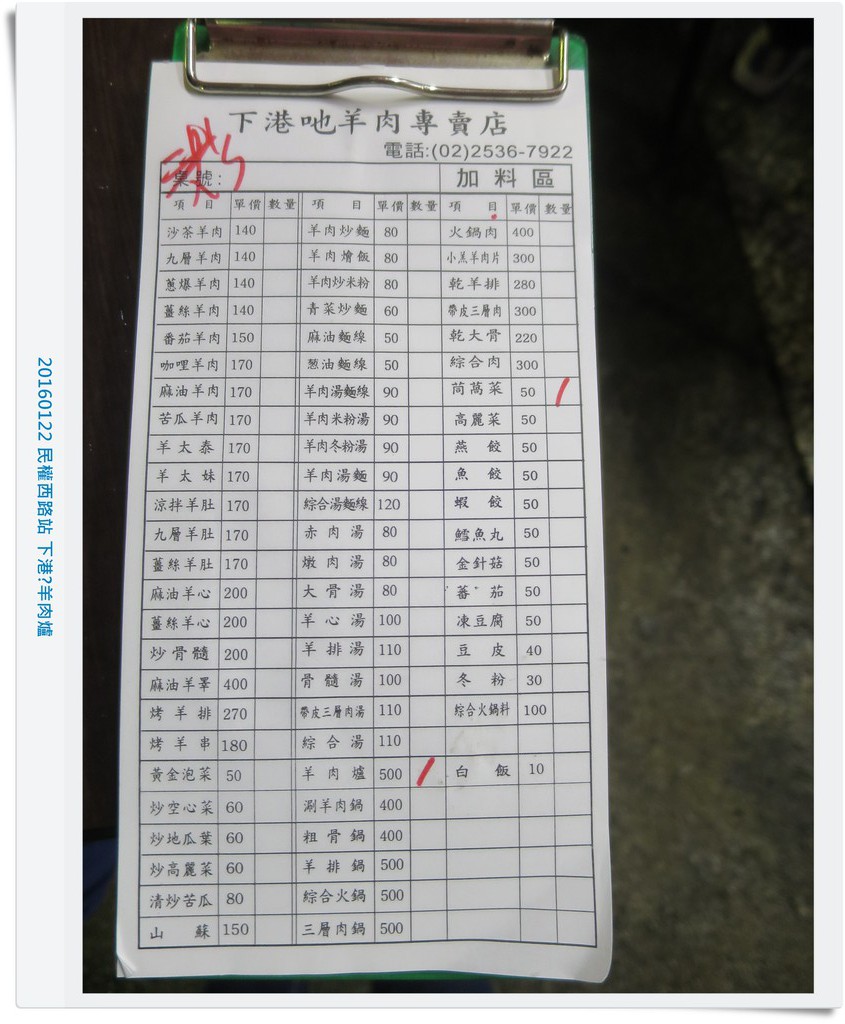 下港吔羊肉專賣店
電話:(02)2536-7922
桌號: 加料區
項目 單價 數量 項目 單價 數量 項目 單價 數量
沙茶羊肉 140 羊肉炒麵 80 火鍋肉 400
九層羊肉 140 羊肉燴飯 80 小羔羊肉片 300
蔥爆羊肉 140 羊肉炒米粉 80 乾羊排 280
薑絲羊肉 140 青菜炒麵 60 帶皮三層肉 300
番茄羊肉 150 麻油麵線 50 乾大骨 220
咖哩羊肉 170 葱油麵線 50 綜合肉 300
麻油羊肉 170 羊肉湯麵線 90 茼萵菜 50 /
苦瓜羊肉 170 羊肉米粉湯 90 高麗菜 50
羊太泰 170 羊肉冬粉湯 90 燕餃 50
羊太妹 170 羊肉湯麵 90 魚餃 50
涼拌羊肚 170 綜合湯麵線 120 蝦餃 50
九層羊肚 170 赤肉湯 80 鱈魚丸 50
薑絲羊肚 170 燉肉湯 80 金針菇 50
麻油羊心 200 大骨湯 80 蕃茄 50
薑絲羊心 200 羊心湯 100 凍豆腐 50
炒骨髓 200 羊排湯 110 豆皮 40
麻油羊睪 400 骨髓湯 100 冬粉 30
烤羊排 270 帶皮三層肉湯 110 綜合火鍋料 100
烤羊串 180 綜合湯 110
黃金泡菜 50 羊肉爐 500 / 白飯 10
炒空心菜 60 涮羊肉鍋 400
炒地瓜葉 60 粗骨鍋 400
炒高麗菜 60 羊排鍋 500
清炒苦瓜 80 綜合火鍋 500
山蘇 150 三層肉鍋 500
20160122 民權西路站 下港?羊肉爐